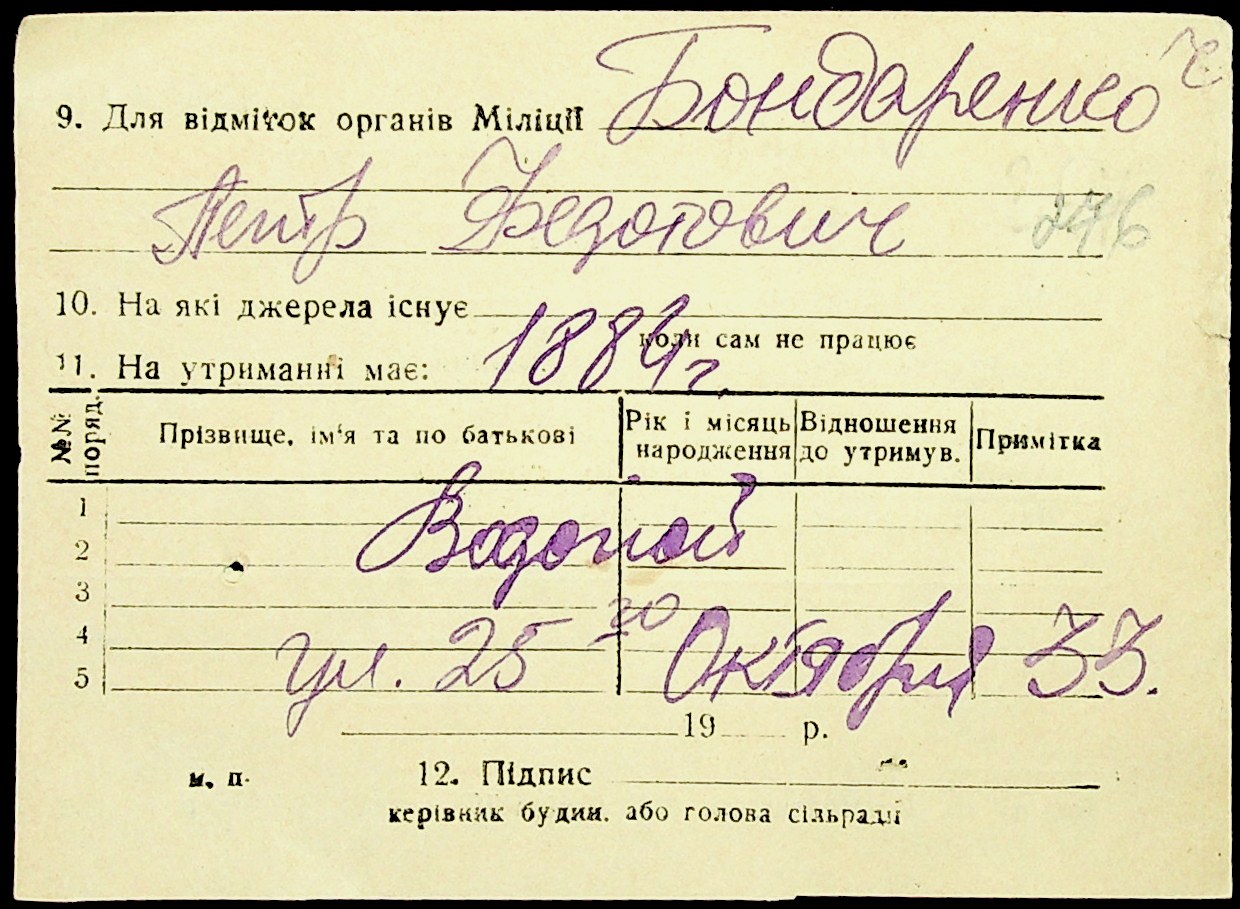 9. Для відміток органів Міліції Бондаренко
Петр Федотович 246
10. На які джерела існує
коли сам не працює
11. На утриманні має: 1884 г.
№№ поряд. Прізвище, ім'я та по батькові Рік і місяць народження Відношення до утримув. Примітка
1
2 Водопой
3
4
5 ул. 25 го Октября 33.
19 р.
м. п. 12. Підпис
керівник будин. або голова сільради